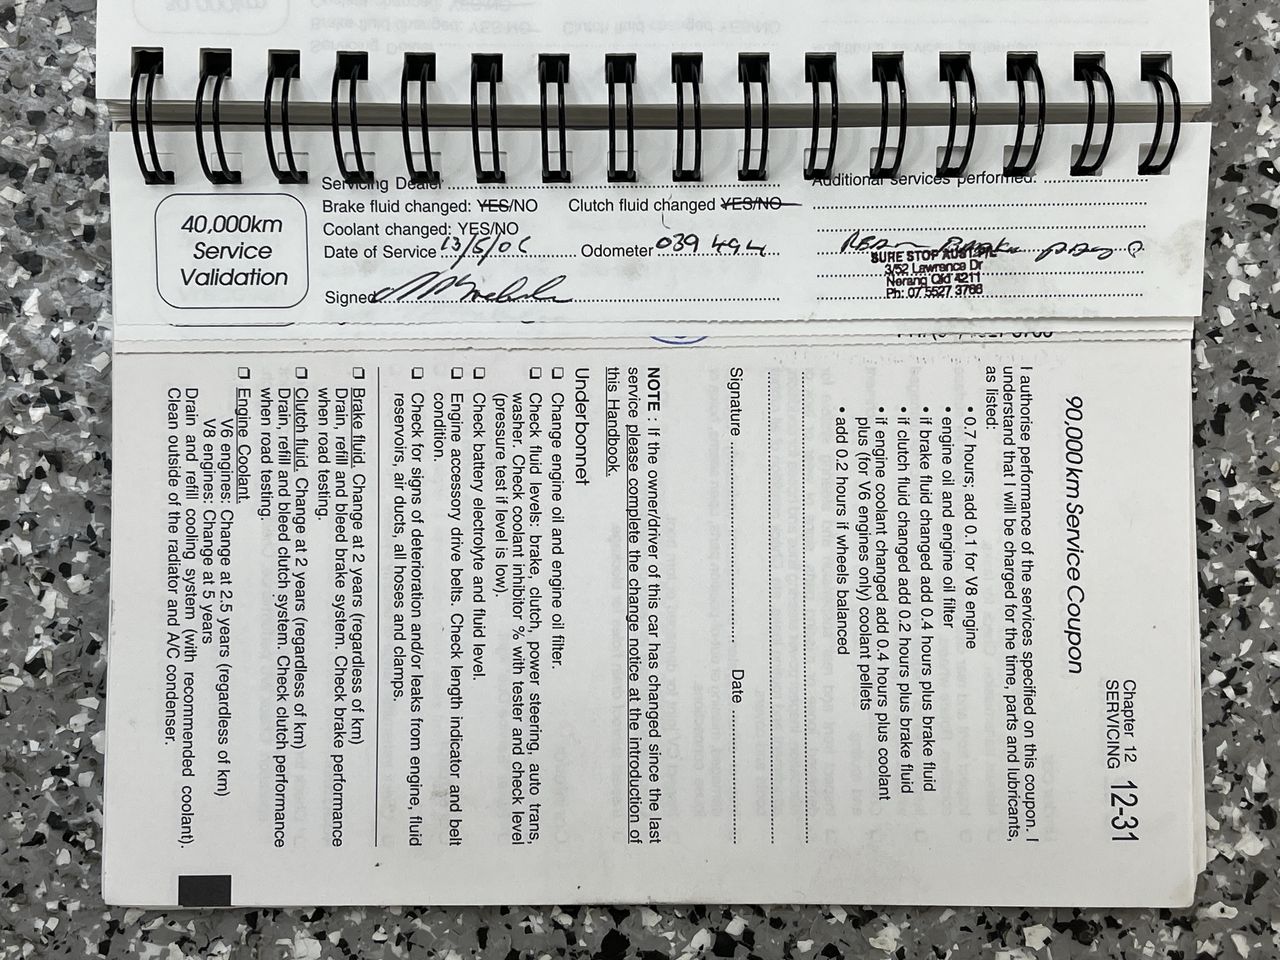 40,000km
Service
Validation
Servicing Dealer
Brake fluid changed: YES/NO Clutch fluid changed YES/NO
Coolant changed: YES/NO
Date of Service 13/5/06 Odometer 039 494
Signed
Additional services performed:
SURE STOP AUST P/L
3/52 Lawrence Dr
Nerang Qld 4211
Ph: 07 5527 3766
Chapter 12
SERVICING 12-31
90,000 km Service Coupon
I authorise performance of the services specified on this coupon. I
understand that I will be charged for the time, parts and lubricants,
as listed:
• 0.7 hours; add 0.1 for V8 engine
• engine oil and engine oil filter
• if brake fluid changed add 0.4 hours plus brake fluid
• if clutch fluid changed add 0.2 hours plus brake fluid
• if engine coolant changed add 0.4 hours plus coolant
plus (for V6 engines only) coolant pellets
• add 0.2 hours if wheels balanced
Signature Date
NOTE : If the owner/driver of this car has changed since the last
service please complete the change notice at the introduction of
this Handbook.
Underbonnet
❑ Change engine oil and engine oil filter.
❑ Check fluid levels: brake, clutch, power steering, auto trans,
washer. Check coolant inhibitor % with tester and check level
(pressure test if level is low).
❑ Check battery electrolyte and fluid level.
❑ Engine accessory drive belts. Check length indicator and belt
condition.
❑ Check for signs of deterioration and/or leaks from engine, fluid
reservoirs, air ducts, all hoses and clamps.
❑ Brake fluid. Change at 2 years (regardless of km)
Drain, refill and bleed brake system. Check brake performance
when road testing.
❑ Clutch fluid. Change at 2 years (regardless of km)
Drain, refill and bleed clutch system. Check clutch performance
when road testing.
❑ Engine Coolant.
V6 engines: Change at 2.5 years (regardless of km)
V8 engines: Change at 5 years
Drain and refill cooling system (with recommended coolant).
Clean outside of the radiator and A/C condenser.